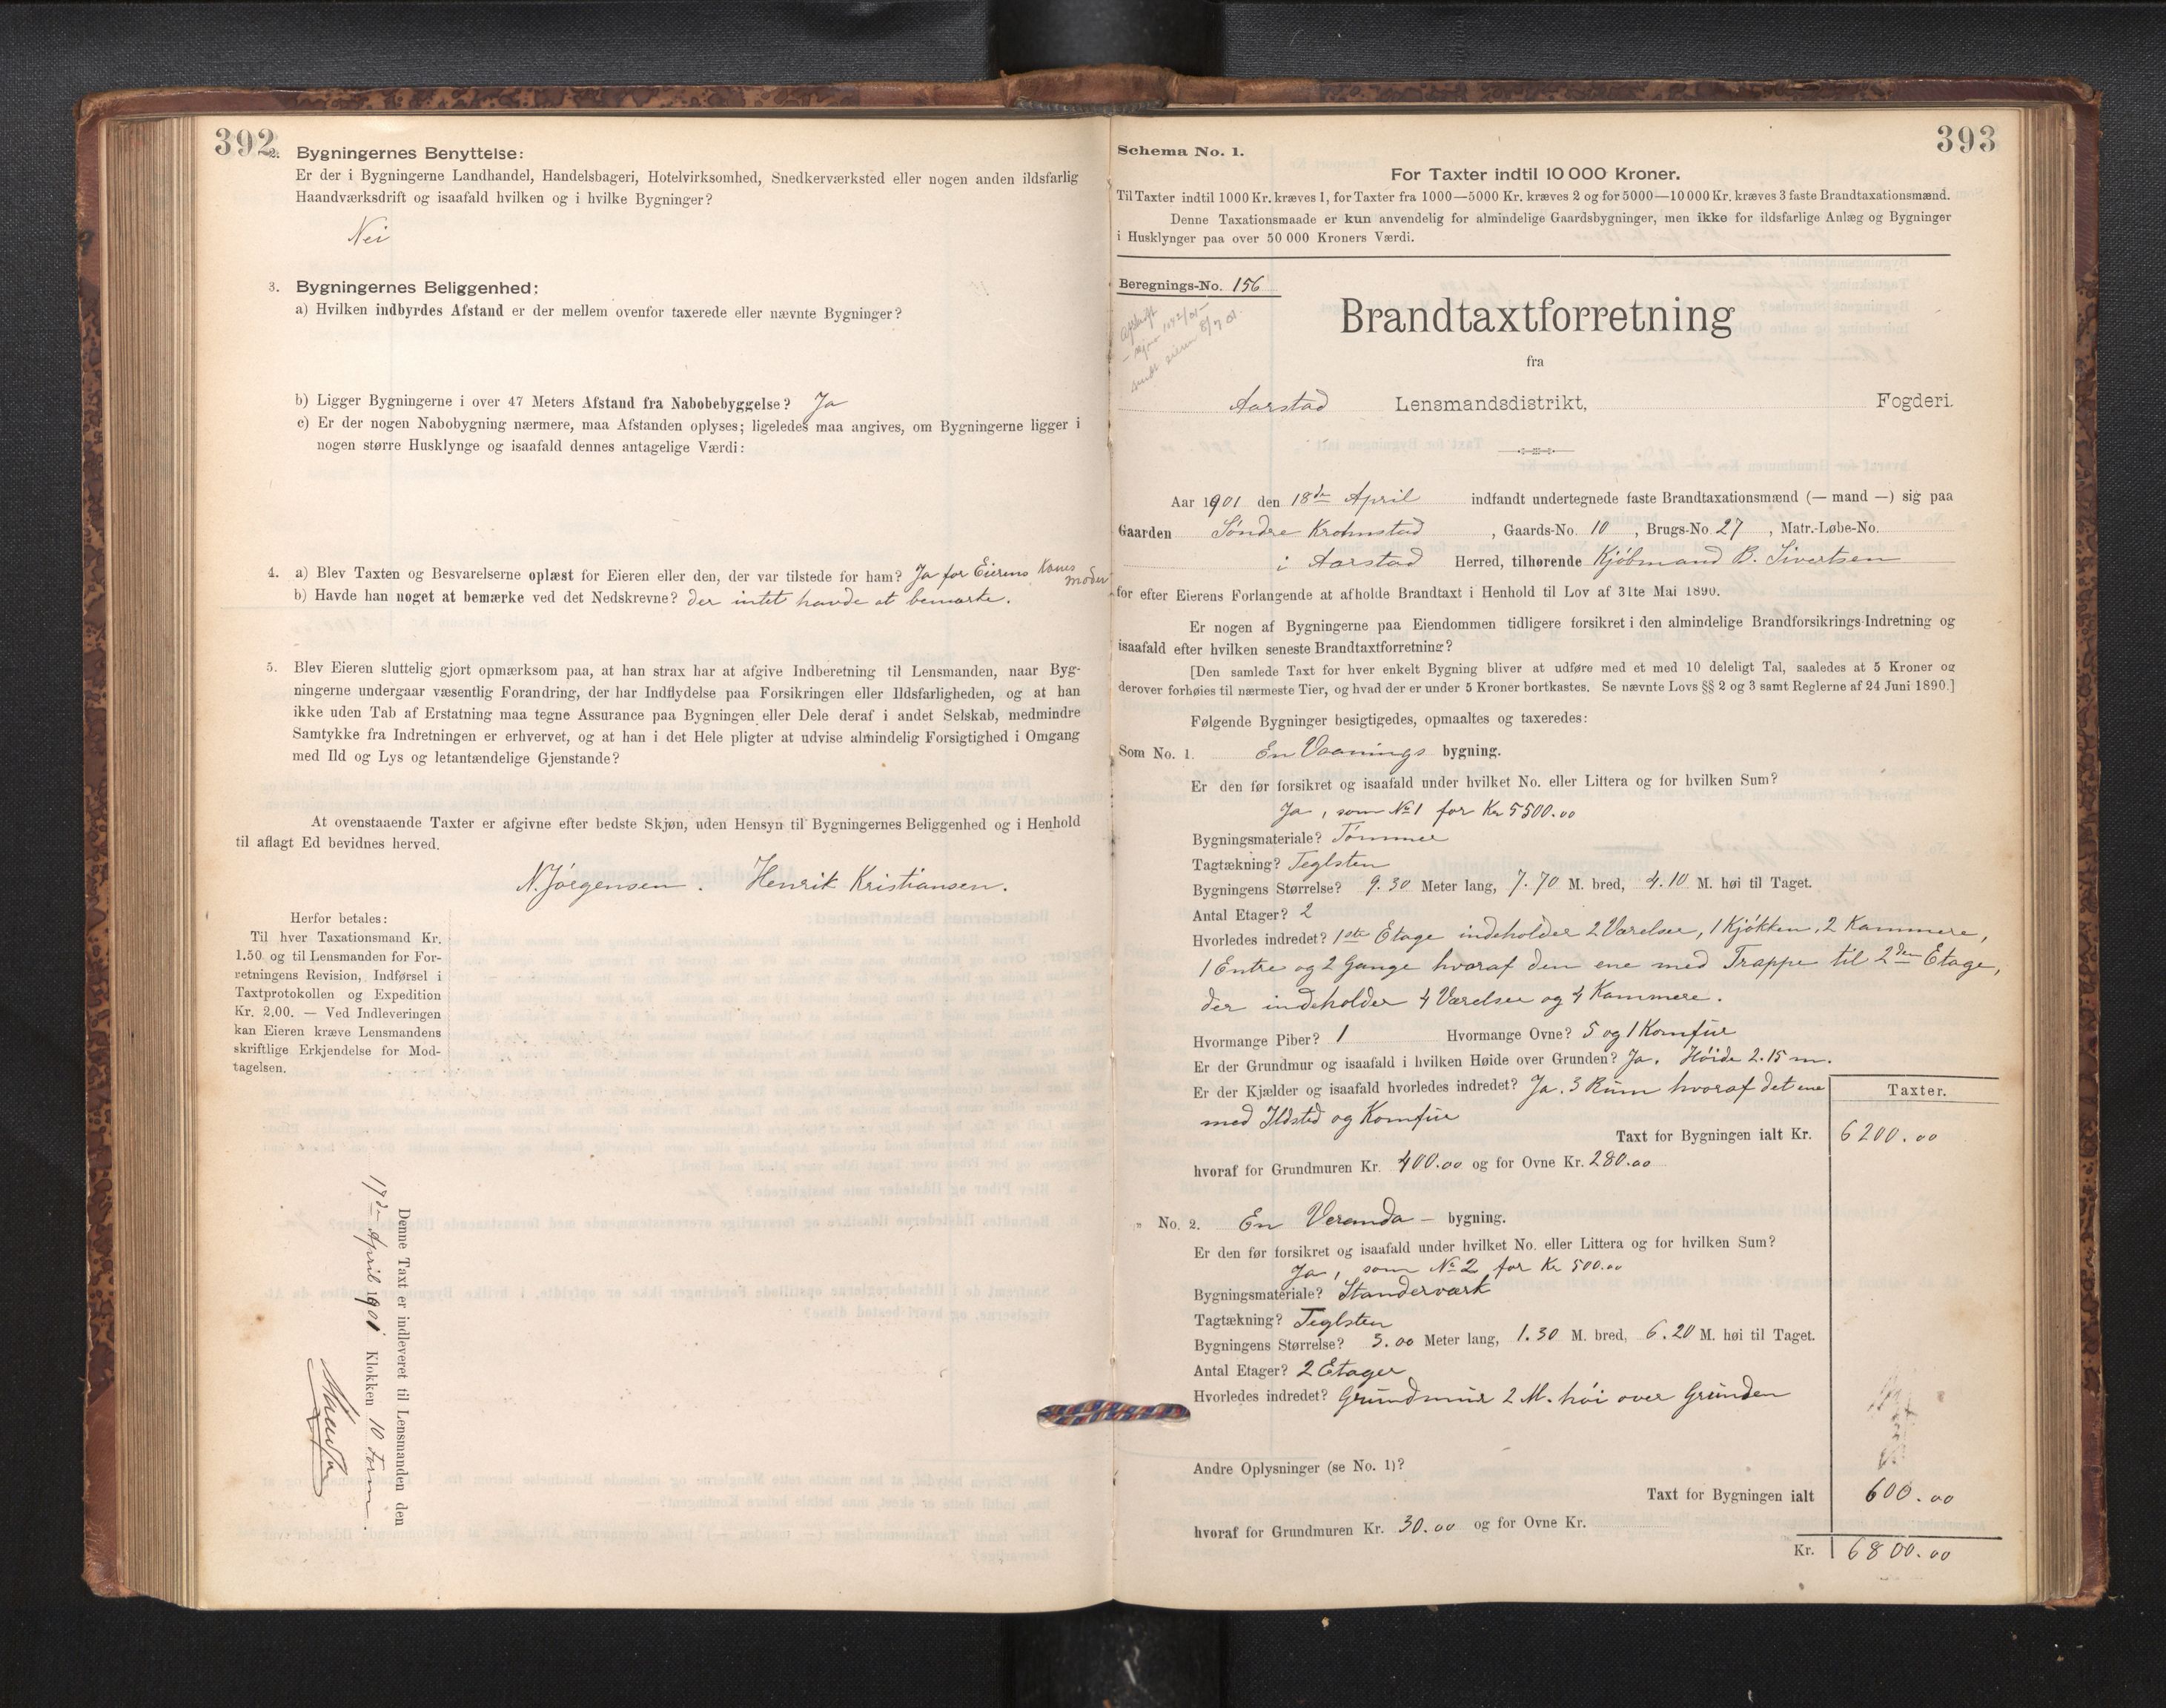 392
2. Bygningernes Benyttelse:
Er der i Bygningerne Landhandel, Handelsbageri, Hotelvirksomhed, Snedkerværksted eller nogen anden ildsfarlig
Haandværksdrift og isaafald hvilken og i hvilke Bygninger?
Nei
3. Bygningernes Beliggenhed:
a) Hvilken indbyrdes Afstand er der mellem ovenfor taxerede eller nævnte Bygninger?
b) Ligger Bygningerne i over 47 Meters Afstand fra Nabobebyggelse? Ja
c) Er der nogen Nabobygning nærmere, maa Afstanden oplyses; ligeledes maa angives, om Bygningerne ligger i
nogen større Husklynge og isaafald dennes antagelige Værdi:
4. a) Blev Taxten og Besvarelserne oplæst for Eieren eller den, der var tilstede for ham? Ja for Eierens Kones
moder
b) Havde han noget at bemærke ved det Nedskrevne? der intet havde at bemærke.
5. Blev Eieren sluttelig gjort opmærksom paa, at han strax har at afgive Indberetning til Lensmanden, naar Byg-
ningerne undergaar væsentlig Forandring, der har Indflydelse paa Forsikringen eller Ildsfarligheden, og at han
ikke uden Tab af Erstatning maa tegne Assurance paa Bygningen eller Dele deraf i andet Selskab, medmindre
Samtykke fra Indretningen er erhvervet, og at han i det Hele pligter at udvise almindelig Forsigtighed i Omgang
med Ild og Lys og letantændelige Gjenstande?
At ovenstaaende Taxter er afgivne efter bedste Skjøn, uden Hensyn til Bygningernes Beliggenhed og i Henhold
til aflagt Ed bevidnes herved.
N. Jörgensen. Henrik Kristiansen.
Herfor betales:
Til hver Taxationsmand Kr.
1.50 og til Lensmanden for For-
retningens Revision, Indførsel i
Taxtprotokollen og Expedition
Kr. 2,00. — Ved Indleveringen
kan Eieren kræve Lensmandens
skriftlige Erkjendelse for Mod-
tagelsen.
Denne Taxt er indleveret til Lensmanden den
17de April 1901 Klokken 10 Form.
393
Schema No. 1.
For Taxter indtil 10 000 Kroner.
Til Taxter indtil 1000 Kr. kræves 1, for Taxter fra 1000—5000 Kr. kræves 2 og for 5000—10 000 Kr. kræves 3 faste Brandtaxationsmænd.
Denne Taxationsmaade er kun anvendelig for almindelige Gaardsbygninger, men ikke for ildsfarlige Anlæg og Bygninger
i Husklynger paa over 50 000 Kroners Værdi.
Beregnings-No. 156
Brandtaxtforretning
fra
Aarstad Lensmandsdistrikt, Fogderi.
Aar 1901 den 18de April indfandt undertegnede faste Brandtaxationsmænd (— mand —) sig paa
Gaarden Söndre Krohnstad, Gaards-No. 10, Brugs-No. 27, Matr.-Løbe-No.
i Aarstad Herred, tilhørende Kjöbmand B. Sivertsen
for efter Eierens Forlangende at afholde Brandtaxt i Henhold til Lov af 31te Mai 1890.
Er nogen af Bygningerne paa Eiendommen tidligere forsikret i den almindelige Brandforsikrings-Indretning og
isaafald efter hvilken seneste Brandtaxtforretning?
[Den samlede Taxt for hver enkelt Bygning bliver at udføre med et med 10 deleligt Tal, saaledes at 5 Kroner og
derover forhøies til nærmeste Tier, og hvad der er under 5 Kroner bortkastes. Se nævnte Lovs §§ 2 og 3 samt Reglerne af 24 Juni 1890.]
Følgende Bygninger besigtigedes, opmaaltes og taxeredes:
Som No. 1. En Vaanings bygning.
Er den før forsikret og isaafald under hvilket No. eller Littera og for hvilken Sum?
Ja, som No 1 for Kr 5500.00
Bygningsmateriale? Tömmer
Tagtækning? Teglsten
Bygningens Størrelse? 9.30 Meter lang, 7.70 M. bred, 4.10 M. høi til Taget.
Antal Etager? 2
Hvorledes indredet? 1ste Etage indeholder 2 Værelser, 1 Kjökken, 2 Kammere,
1 Entre og 2 Gange hvoraf den ene med Trappe til 2den Etage,
der indeholder 4 Værelser og 4 Kammere.
Hvormange Piber? 1 Hvormange Ovne? 5 og 1 Komfür
Er der Grundmur og isaafald i hvilken Høide over Grunden? Ja. Höide 2.15 m.
Er der Kjælder og isaafald hvorledes indredet? Ja. 3 Rüm hvoraf det ene
med Ildsted og Komfür
Taxter.
Taxt for Bygningen ialt Kr. 6200.00
hvoraf for Grundmuren Kr. 400.00 og for Ovne Kr. 280.00
" No. 2. En Veranda — bygning.
Er den før forsikret og isaafald under hvilket No. eller Littera og for hvilken Sum?
Ja, som No 2 for Kr 500.00
Bygningsmateriale? Standerværk
Tagtækning? Teglsten
Bygningens Størrelse? 3.00 Meter lang, 1.30 M. bred, 6.20 M. høi til Taget.
Antal Etager? 2 Etager
Hvorledes indredet? Gründmür 2 M. höi over Gründen
Andre Oplysninger (se No. 1)?
Taxt for Bygningen ialt 600.00
hvoraf for Grundmuren Kr. 30.00 og for Ovne Kr.
Kr. 6800.00